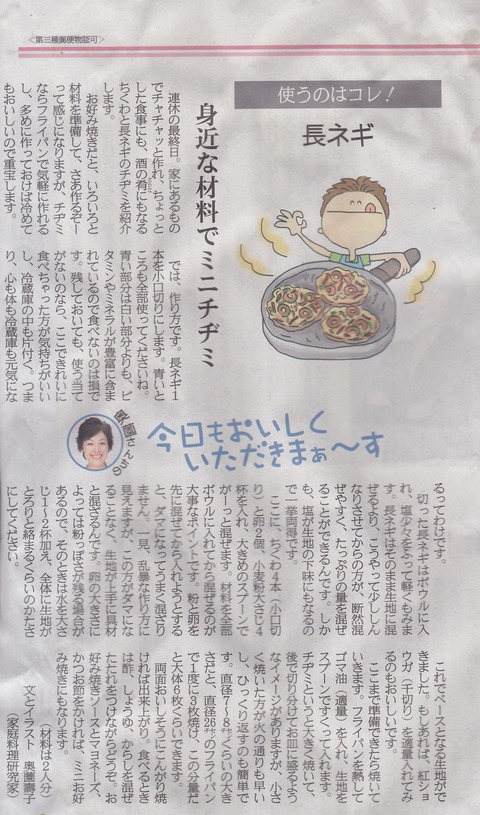 〈第三種郵便物認可〉
使うのはコレ！
長ネギ
身近な材料でミニチヂミ
連休の最終日。家にあるもの
でチャチャッと作れ、ちょっと
した食事にも、酒の肴にもなる
ちくわと長ネギのチヂミを紹介
します。
お好み焼きだと、いろいろと
材料を準備して、さあ作るぞー
って感じになりますが、チヂミ
ならフライパンで気軽に作れる
し、多めに作っておけば冷めて
もおいしいので重宝します。
では、作り方です。長ネギ1
本を小口切りにします。青いと
ころも全部使ってくださいね。
青い部分は白い部分よりも、ビ
タミンやミネラルが豊富に含ま
れているので食べないのは損で
す。残しておいても、使う当て
がないのなら、ここできれいに
食べちゃった方が気持ちがいい
し、冷蔵庫の中も片付く。つま
り、心も体も冷蔵庫も元気にな
奥薗さんちの
今日もおいしく
いただきまぁ〜す
るってわけです。
切った長ネギはボウルに入
れ、塩少々をふって軽くもみま
す。長ネギはそのまま生地に混
ぜるより、こうやって少ししん
なりさせてからの方が、断然混
ぜやすく、たっぷりの量を混ぜ
ることができるんです。しか
も、塩が生地の下味にもなるの
で一挙両得です。
ここに、ちくわ4本（小口切
り）と卵2個、小麦粉大さじ4
杯を入れ、大きめのスプーンで
がーっと混ぜます。材料を全部
ボウルに入れてから混ぜるのが
大事なポイントです。粉と卵を
先に混ぜてから入れようとする
と、ダマになってうまく混ざり
ません。一見、乱暴な作り方に
見えますが、この方がダマにな
ることなく、生地が上手に具材
と混ざるんです。卵の大きさに
よっては粉っぽさが残る場合が
あるので、そのときは水を大さ
じ1〜2杯加え、全体に生地が
とろりと絡まるくらいのかたさ
にしてください。
これでベースとなる生地がで
きました。もしあれば、紅ショ
ウガ（千切り）を適量入れてみ
るのもおいしいです。
ここまで準備できたら焼いて
いきます。フライパンを熱して
ゴマ油（適量）を入れ、生地を
スプーンですくって入れます。
チヂミというと大きく焼いて、
後で切り分けてお皿に盛るよう
なイメージがありますが、小さ
く焼いた方が火の通りも早い
し、ひっくり返すのも簡単で
す。直径7〜8㌢くらいの大き
さだと、直径26㌢のフライパン
で1度に3枚焼け、この分量だ
と大体6枚くらいできます。
両面おいしそうにこんがり焼
ければ出来上がり。食べるとき
は酢、しょうゆ、からしを混ぜ
たたれをつけながらどうぞ。お
好み焼きソースとマヨネーズ、
かつお節をかければ、ミニお好
み焼きにもなります。
（材料は2人分）
文とイラスト　奥薗壽子
（家庭料理研究家）